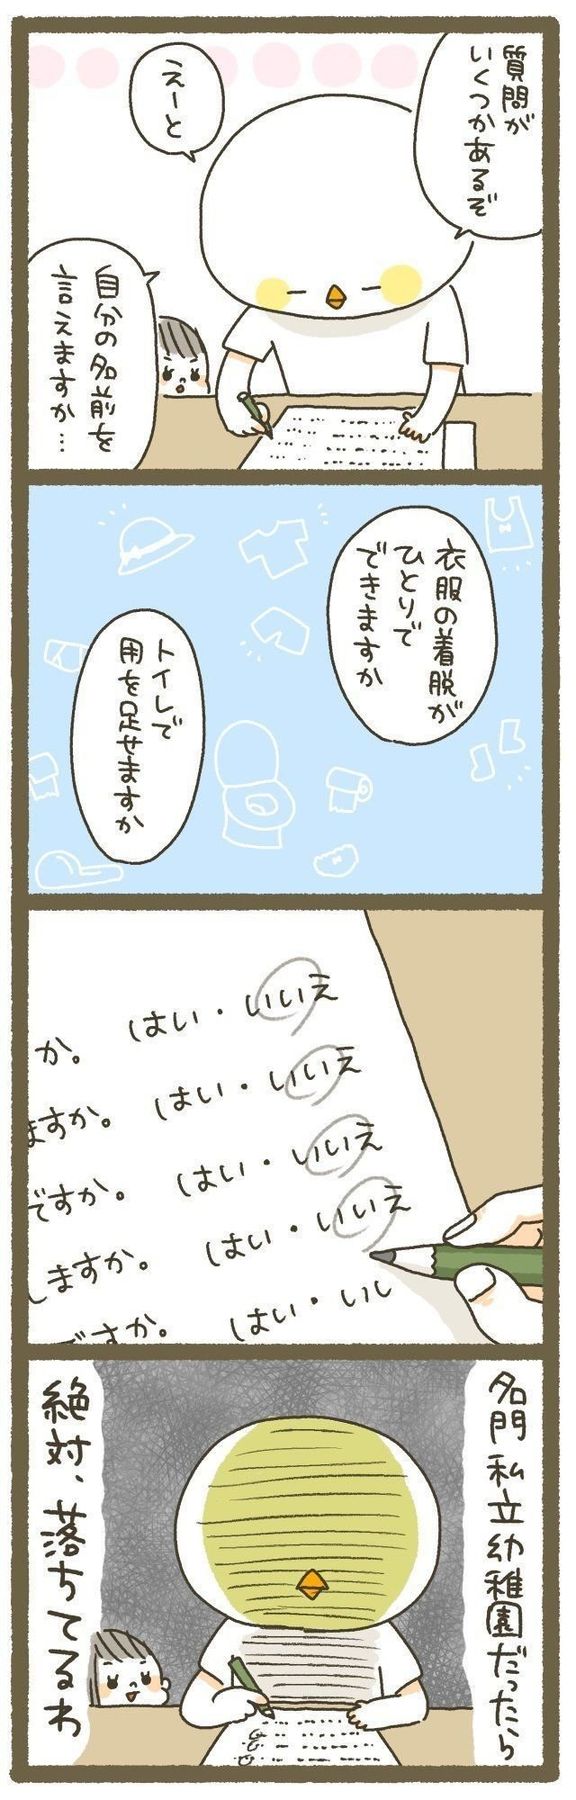 質問が
いくつかあるぞ
えーと
自分の名前を
言えますか…
衣服の着脱が
ひとりで
できますか
トイレで
用を足せますか
か。 はい・いいえ
ますか。 はい・いいえ
ですか。 はい・いいえ
しますか。 はい・いいえ
ですか。 はい・いい
名門私立幼稚園だったら
絶対、落ちてるわ